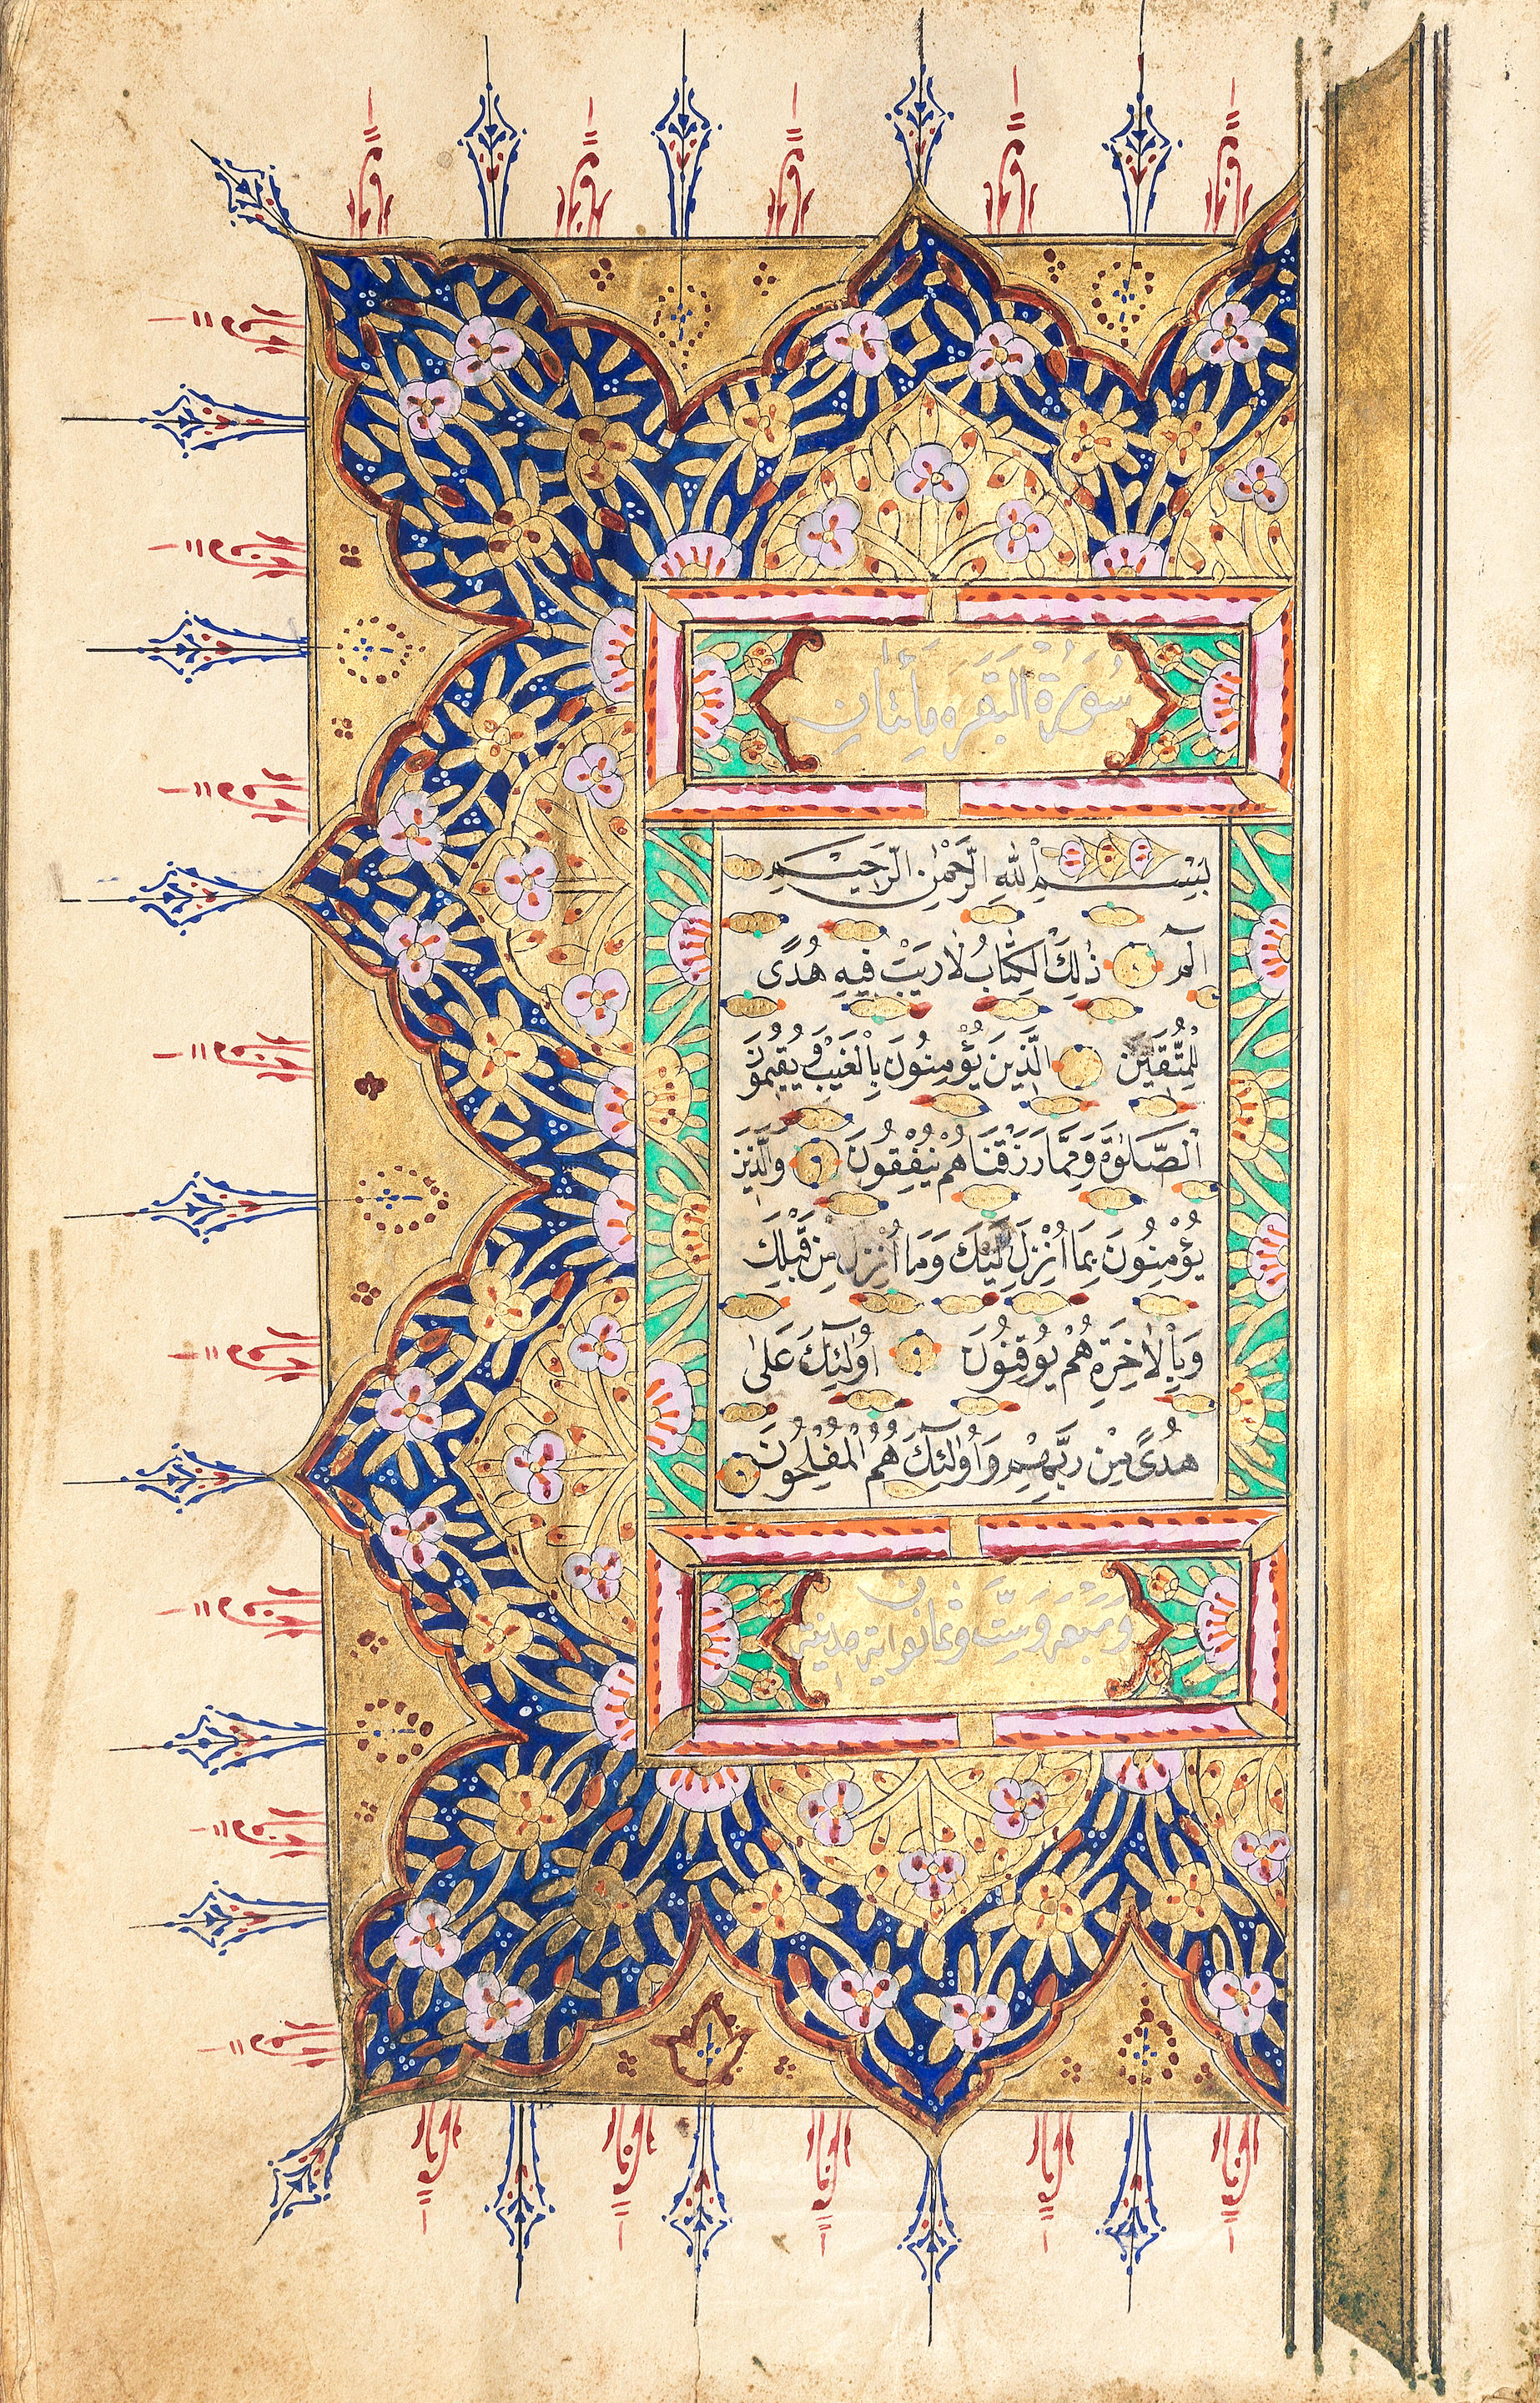 سُورَةُ الْبَقَرَه مِائَتَانِ
بِسْمِ اللّٰهِ الرَّحْمٰنِ الرَّحِيمِ
الٓمٓ ذٰلِكَ الْكِتَابُ لَا رَيْبَ فِيهِ هُدًى
لِلْمُتَّقِينَ الَّذِينَ يُؤْمِنُونَ بِالْغَيْبِ وَيُقِيمُونَ
الصَّلٰوةَ وَمِمَّا رَزَقْنَاهُمْ يُنْفِقُونَ وَالَّذِينَ
يُؤْمِنُونَ بِمَا اُنْزِلَ اِلَيْكَ وَمَا اُنْزِلَ مِنْ قَبْلِكَ
وَبِالْاٰخِرَةِ هُمْ يُوقِنُونَ اُولٰٓئِكَ عَلٰى
هُدًى مِنْ رَبِّهِمْ وَاُولٰٓئِكَ هُمُ الْمُفْلِحُونَ
وَسِتّ وثمانون اية مدنية